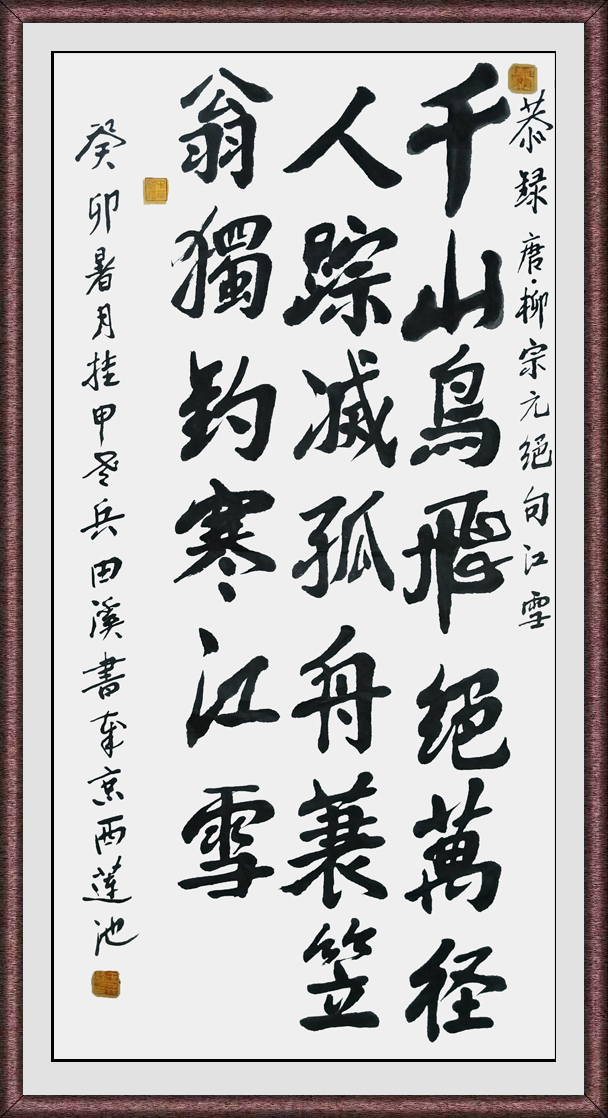 恭録唐·柳宗元绝句江雪
千山鳥飛絕萬径
人踪滅孤舟蓑笠
翁獨釣寒江雪
癸卯暑月挂甲老兵田溪書奉京西蓮池